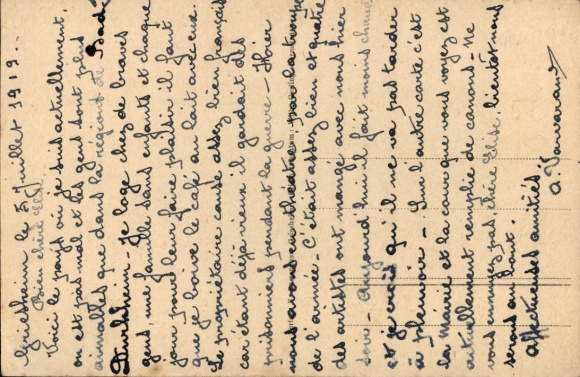 Griesheim le 5 Juillet 1919..
Bien chère Elise.
Voici le pays où je suis actuellement,
on est pas mal et les gens sont plus
aimables que dans la région de Bad-
Durkheim - Je loge chez de braves
gens une famille sans enfants et chaque
jour pour leur faire plaisir il faut
que je boive le café au lait avec eux.
Le propriétaire cause assez bien français
car étant déjà vieux il gardait des
prisonniers pendant la guerre - Hier
nous avons theatre par la troupe
de l'armée - C'était assez bien et quatre
des artistes ont mangé avec nous hier
soir - Aujourd'hui il fait moins chaud
et je crois qu'il ne va pas tarder
à pleuvoir - Sur l'autre carte c'est
la Mairie et la cour que vous voyez est
actuellement remplie de canons - Ne
vous ennuyez pas, chère Elise, bientôt nous
serons au bout.
Affectueuses amitiés